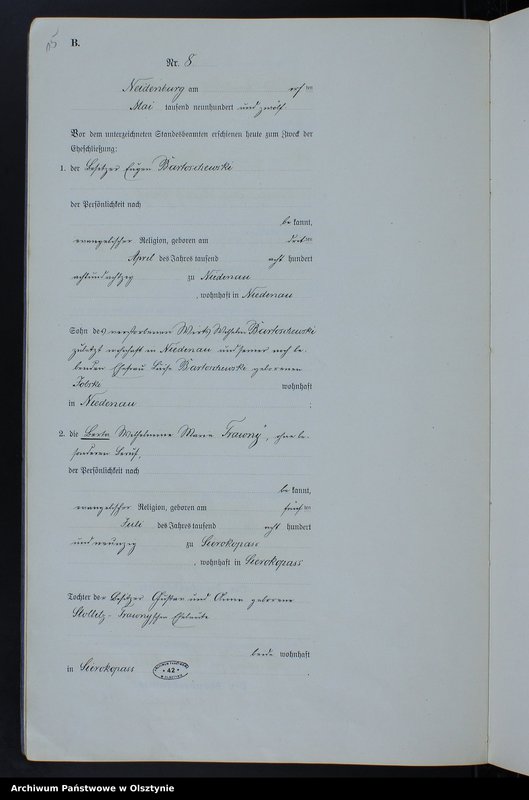 B.
Nr. 8
Neidenburg am ten
Mai tausend neunhundert und zwölf
Vor dem unterzeichneten Standesbeamten erschienen heute zum Zweck der
Eheschließung:
1. der Besitzer Eugen Bartoschewski
der Persönlichkeit nach
be kannt,
evangelischer Religion, geboren am ten
April des Jahres tausend acht hundert
achtundachtzig zu Niedenau
, wohnhaft in Niedenau
Sohn des verstorbenen Wirts Wilhelm Bartoschewski
zuletzt wohnhaft in Niedenau und seiner noch le-
benden Ehefrau Luise Bartoschewski geborenen
wohnhaft
in Niedenau ;
2. die Berta Wilhelmine Marie Trawny, ohne be-
sonderen Beruf,
der Persönlichkeit nach
be kannt,
evangelischer Religion, geboren am ten
Juli des Jahres tausend acht hundert
undneunzig zu Sierokopass
, wohnhaft in Sierokopass
Tochter der Besitzer Gustav und Anna geborene
Trawny'schen Eheleute
beide wohnhaft
in Sierokopass .
42
Archiwum Państwowe w Olsztynie